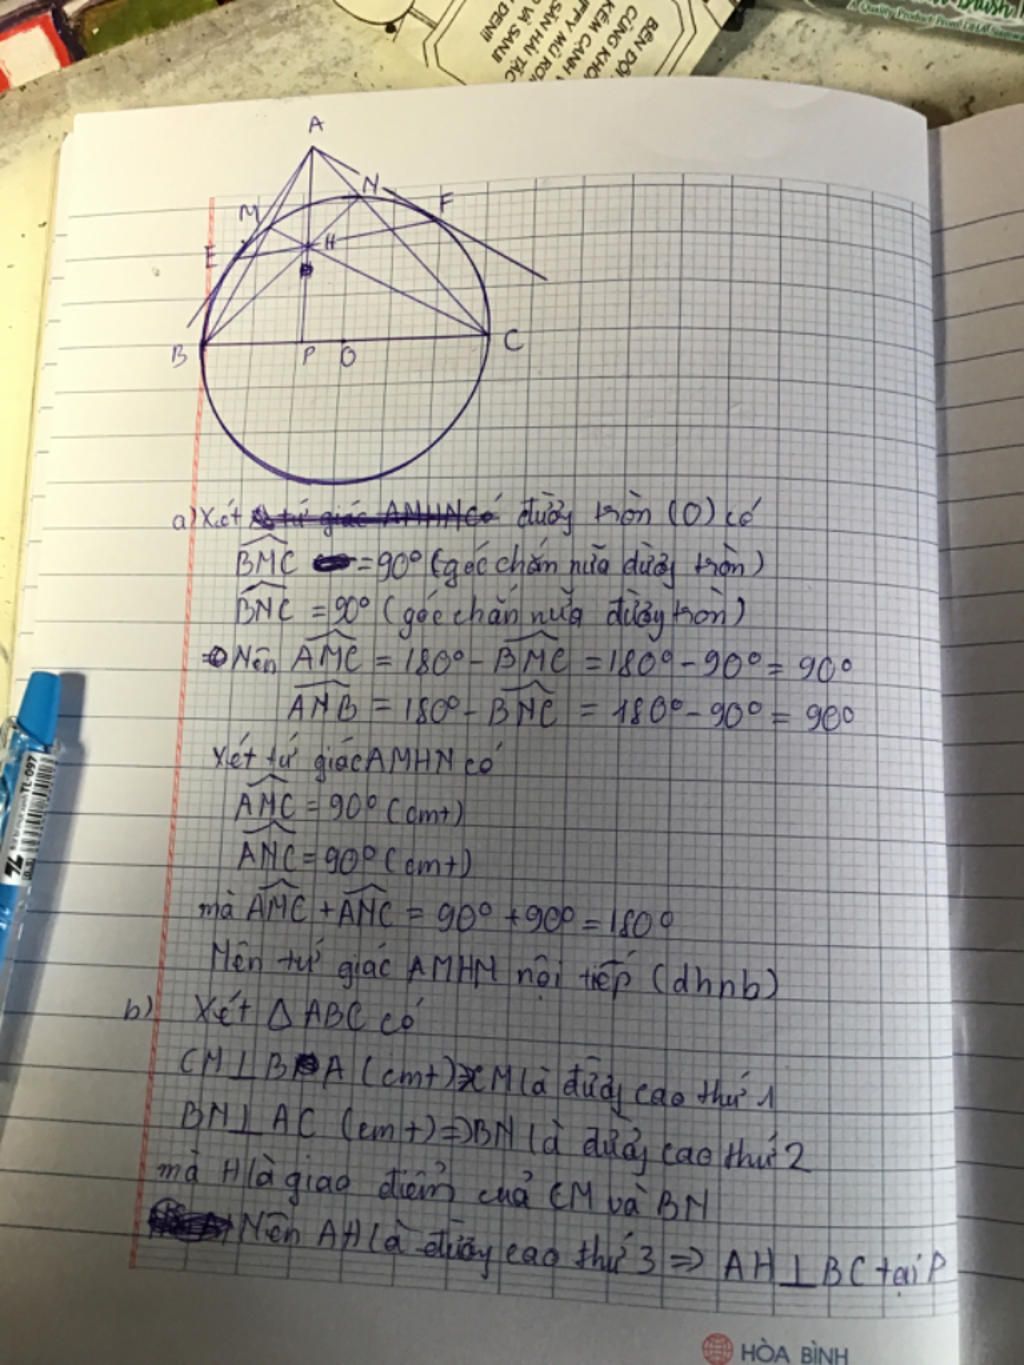 BÊN ĐỜI
CÙNG KHO
KÈM CANH
A Quality Product From
A
M
N
F
E
H
B
P
O
C
a) Xét tứ giác AMHN có đường tròn (O) có
BMC = 90° (góc chắn nửa đường tròn)
BNC = 90° (góc chắn nửa đường tròn)
Nên AMC = 180° - BMC = 180° - 90° = 90°
ANB = 180° - BNC = 180° - 90° = 90°
Xét tứ giác AMHN có
AMC = 90° (cmt)
ANC = 90° (cmt)
mà AMC + ANC = 90° + 90° = 180°
Nên tứ giác AMHN nội tiếp (dhnb)
b) Xét △ABC có
CM⊥BA (cmt) ⇒ CM là đường cao thứ 1
BN⊥AC (cmt) ⇒ BN là đường cao thứ 2
mà H là giao điểm của CM và BN
Nên AH là đường cao thứ 3 ⇒ AH⊥BC tại P
TL-097
HÒA BÌNH